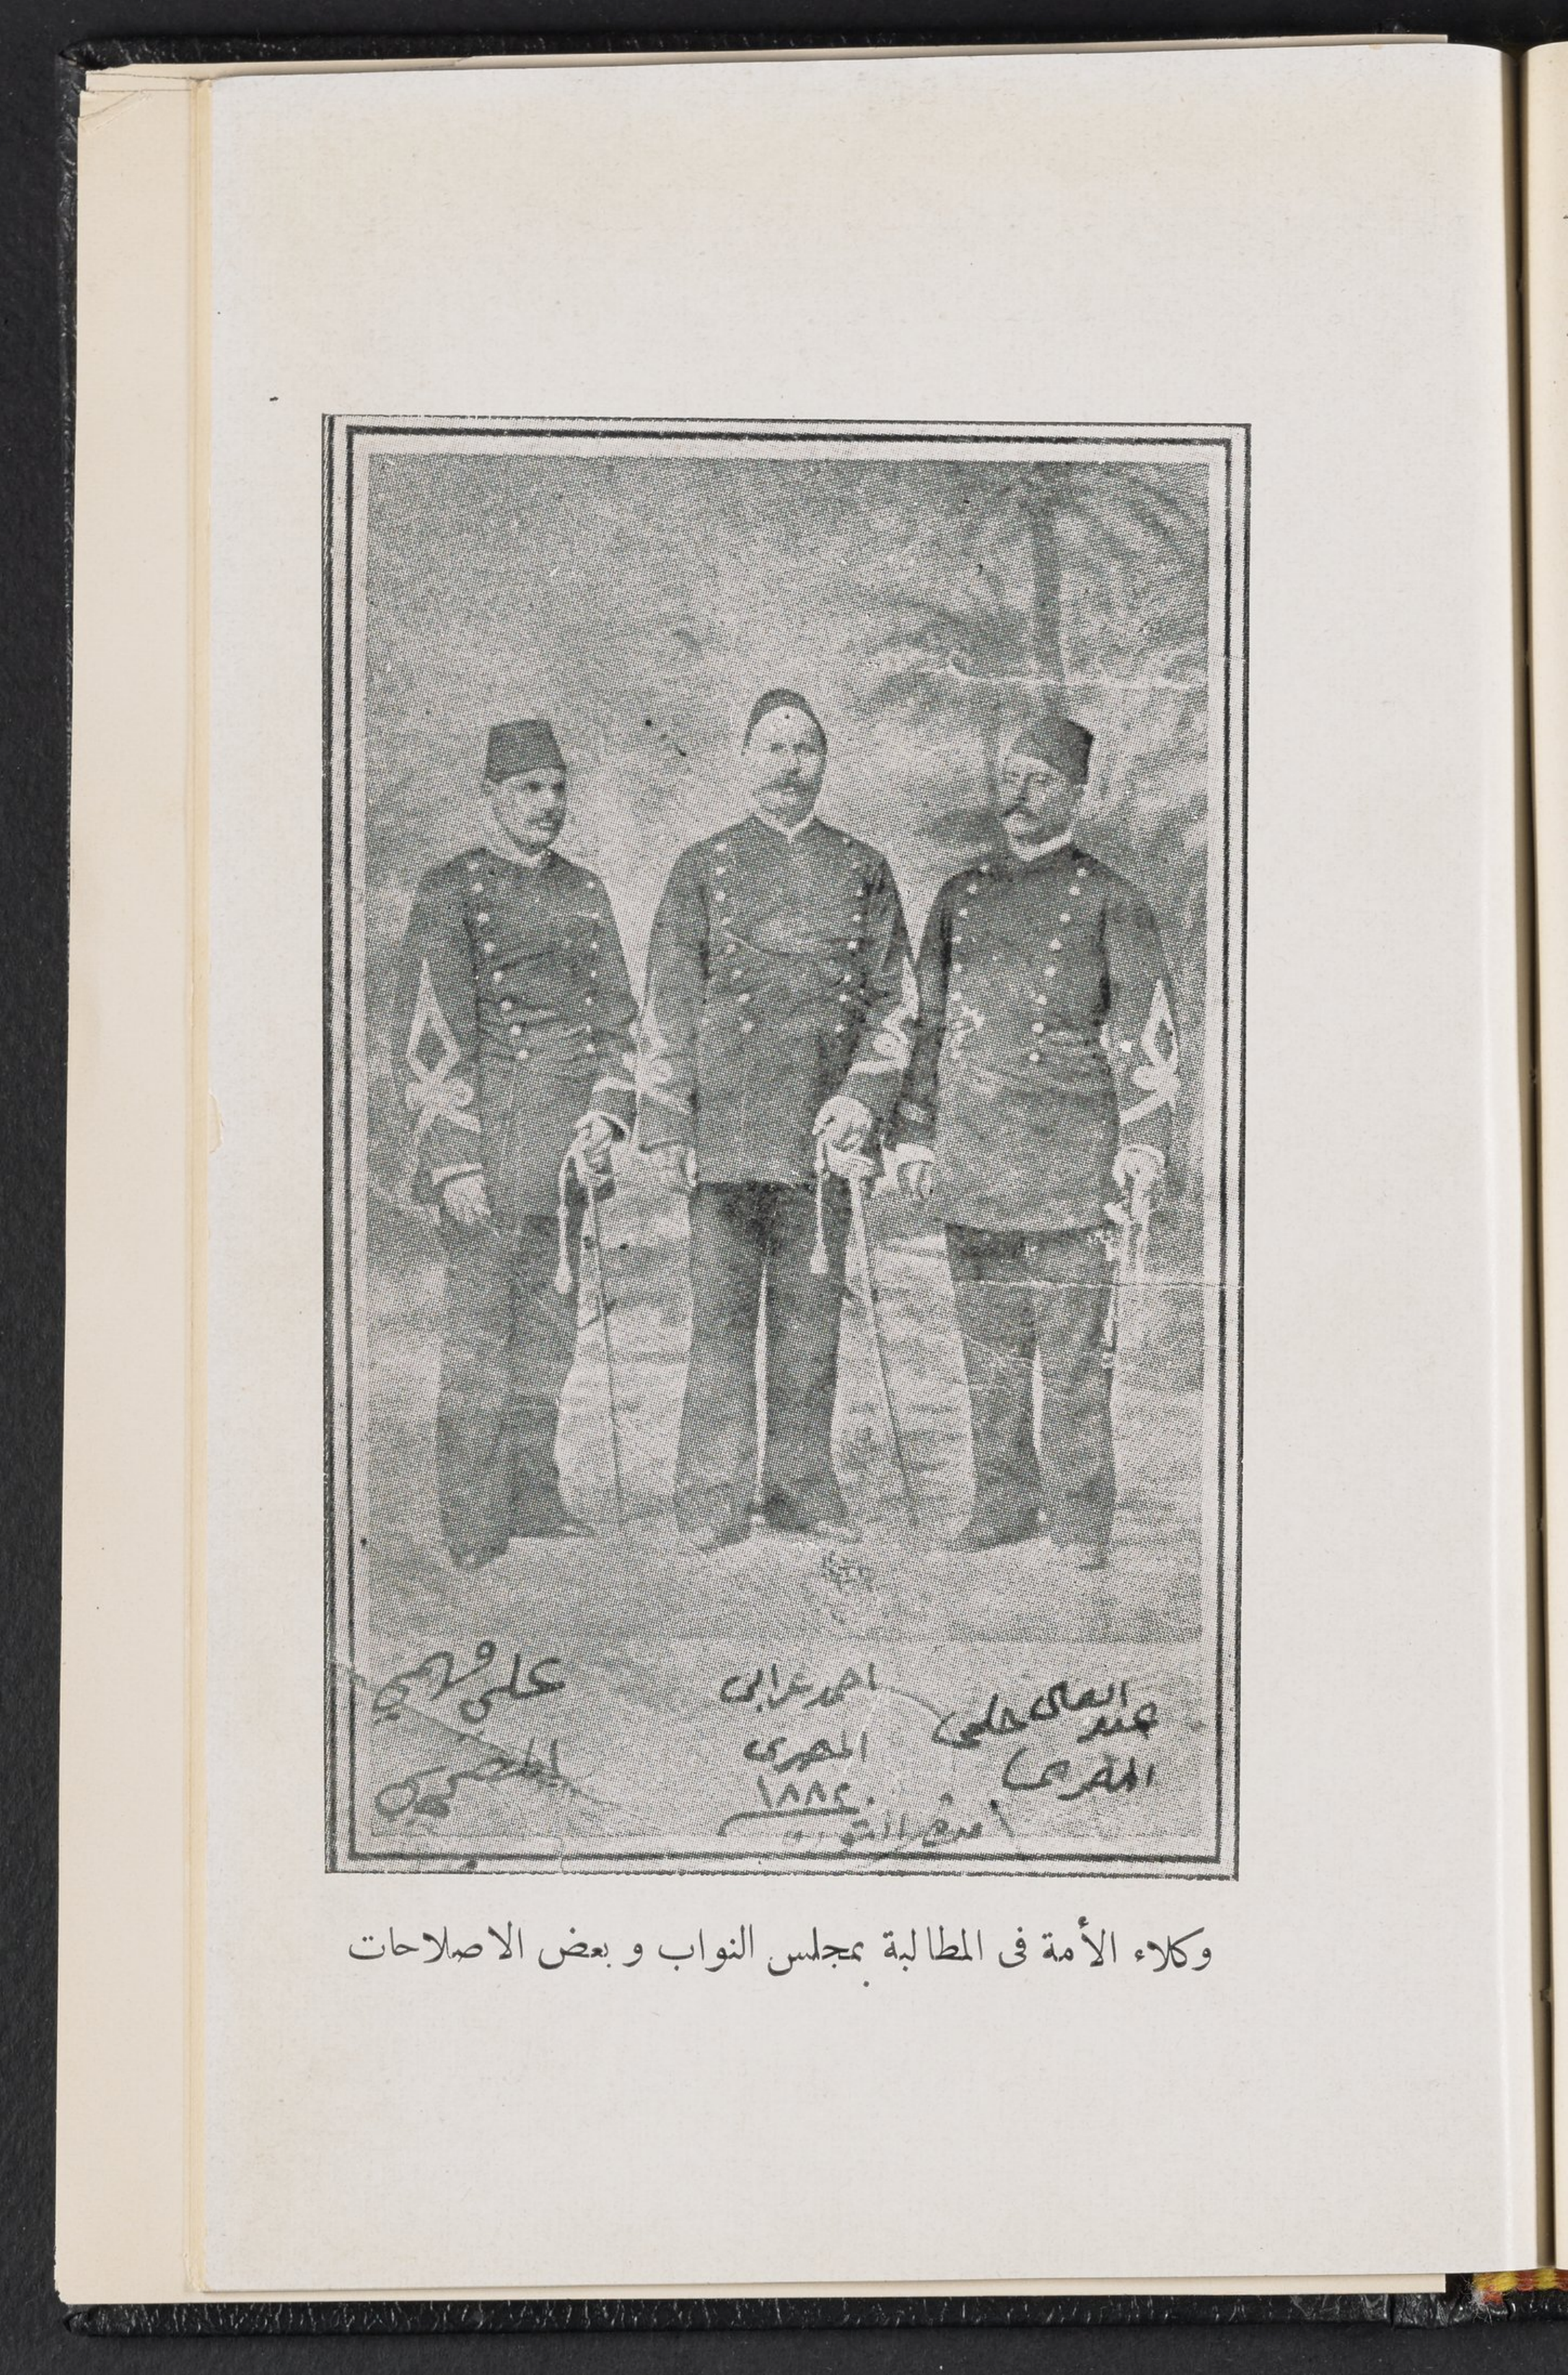 عبد العال حلمى
المصرى
احمد عرابى
المصرى
١٨٨٢
على فهمى
المصرى
وكلاء الأمة فى المطالبة بمجلس النواب و بعض الاصلاحات